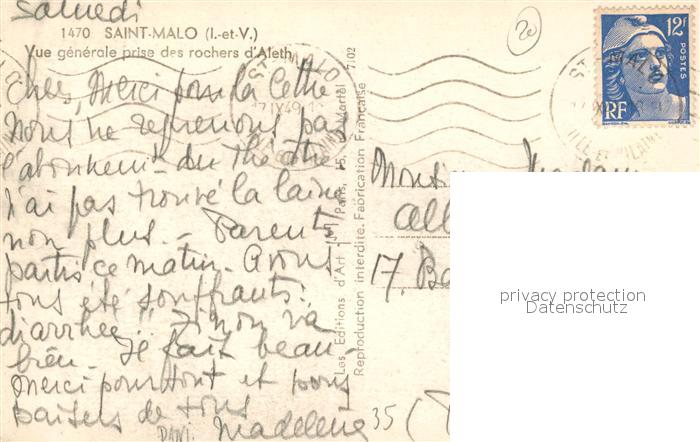 Samedi
1470 SAINT-MALO (I.-et-V.)
Vue générale prise des rochers d'Aleth
Merci pour la lettre
Nous ne reprenons pas
l'abonnemt du théâtre
J'ai pas trouvé la laine
non plus. - Parents
partis ce matin. Avons
tous été souffrants:
diarrhée; Simon va
bien - Je fait beau -
Merci pour tout et bons
baisers de tous
Madeleine
7/02
Les Editions d'Art
Paris, 15,
Martel
Reproduction interdite. Fabrication Française
20
12F
POSTES
RF
ST MALO
17 IX 49
ILLE ET VILAINE
Monsieur Madame
All
17. Ba
35 (
privacy protection
Datenschutz